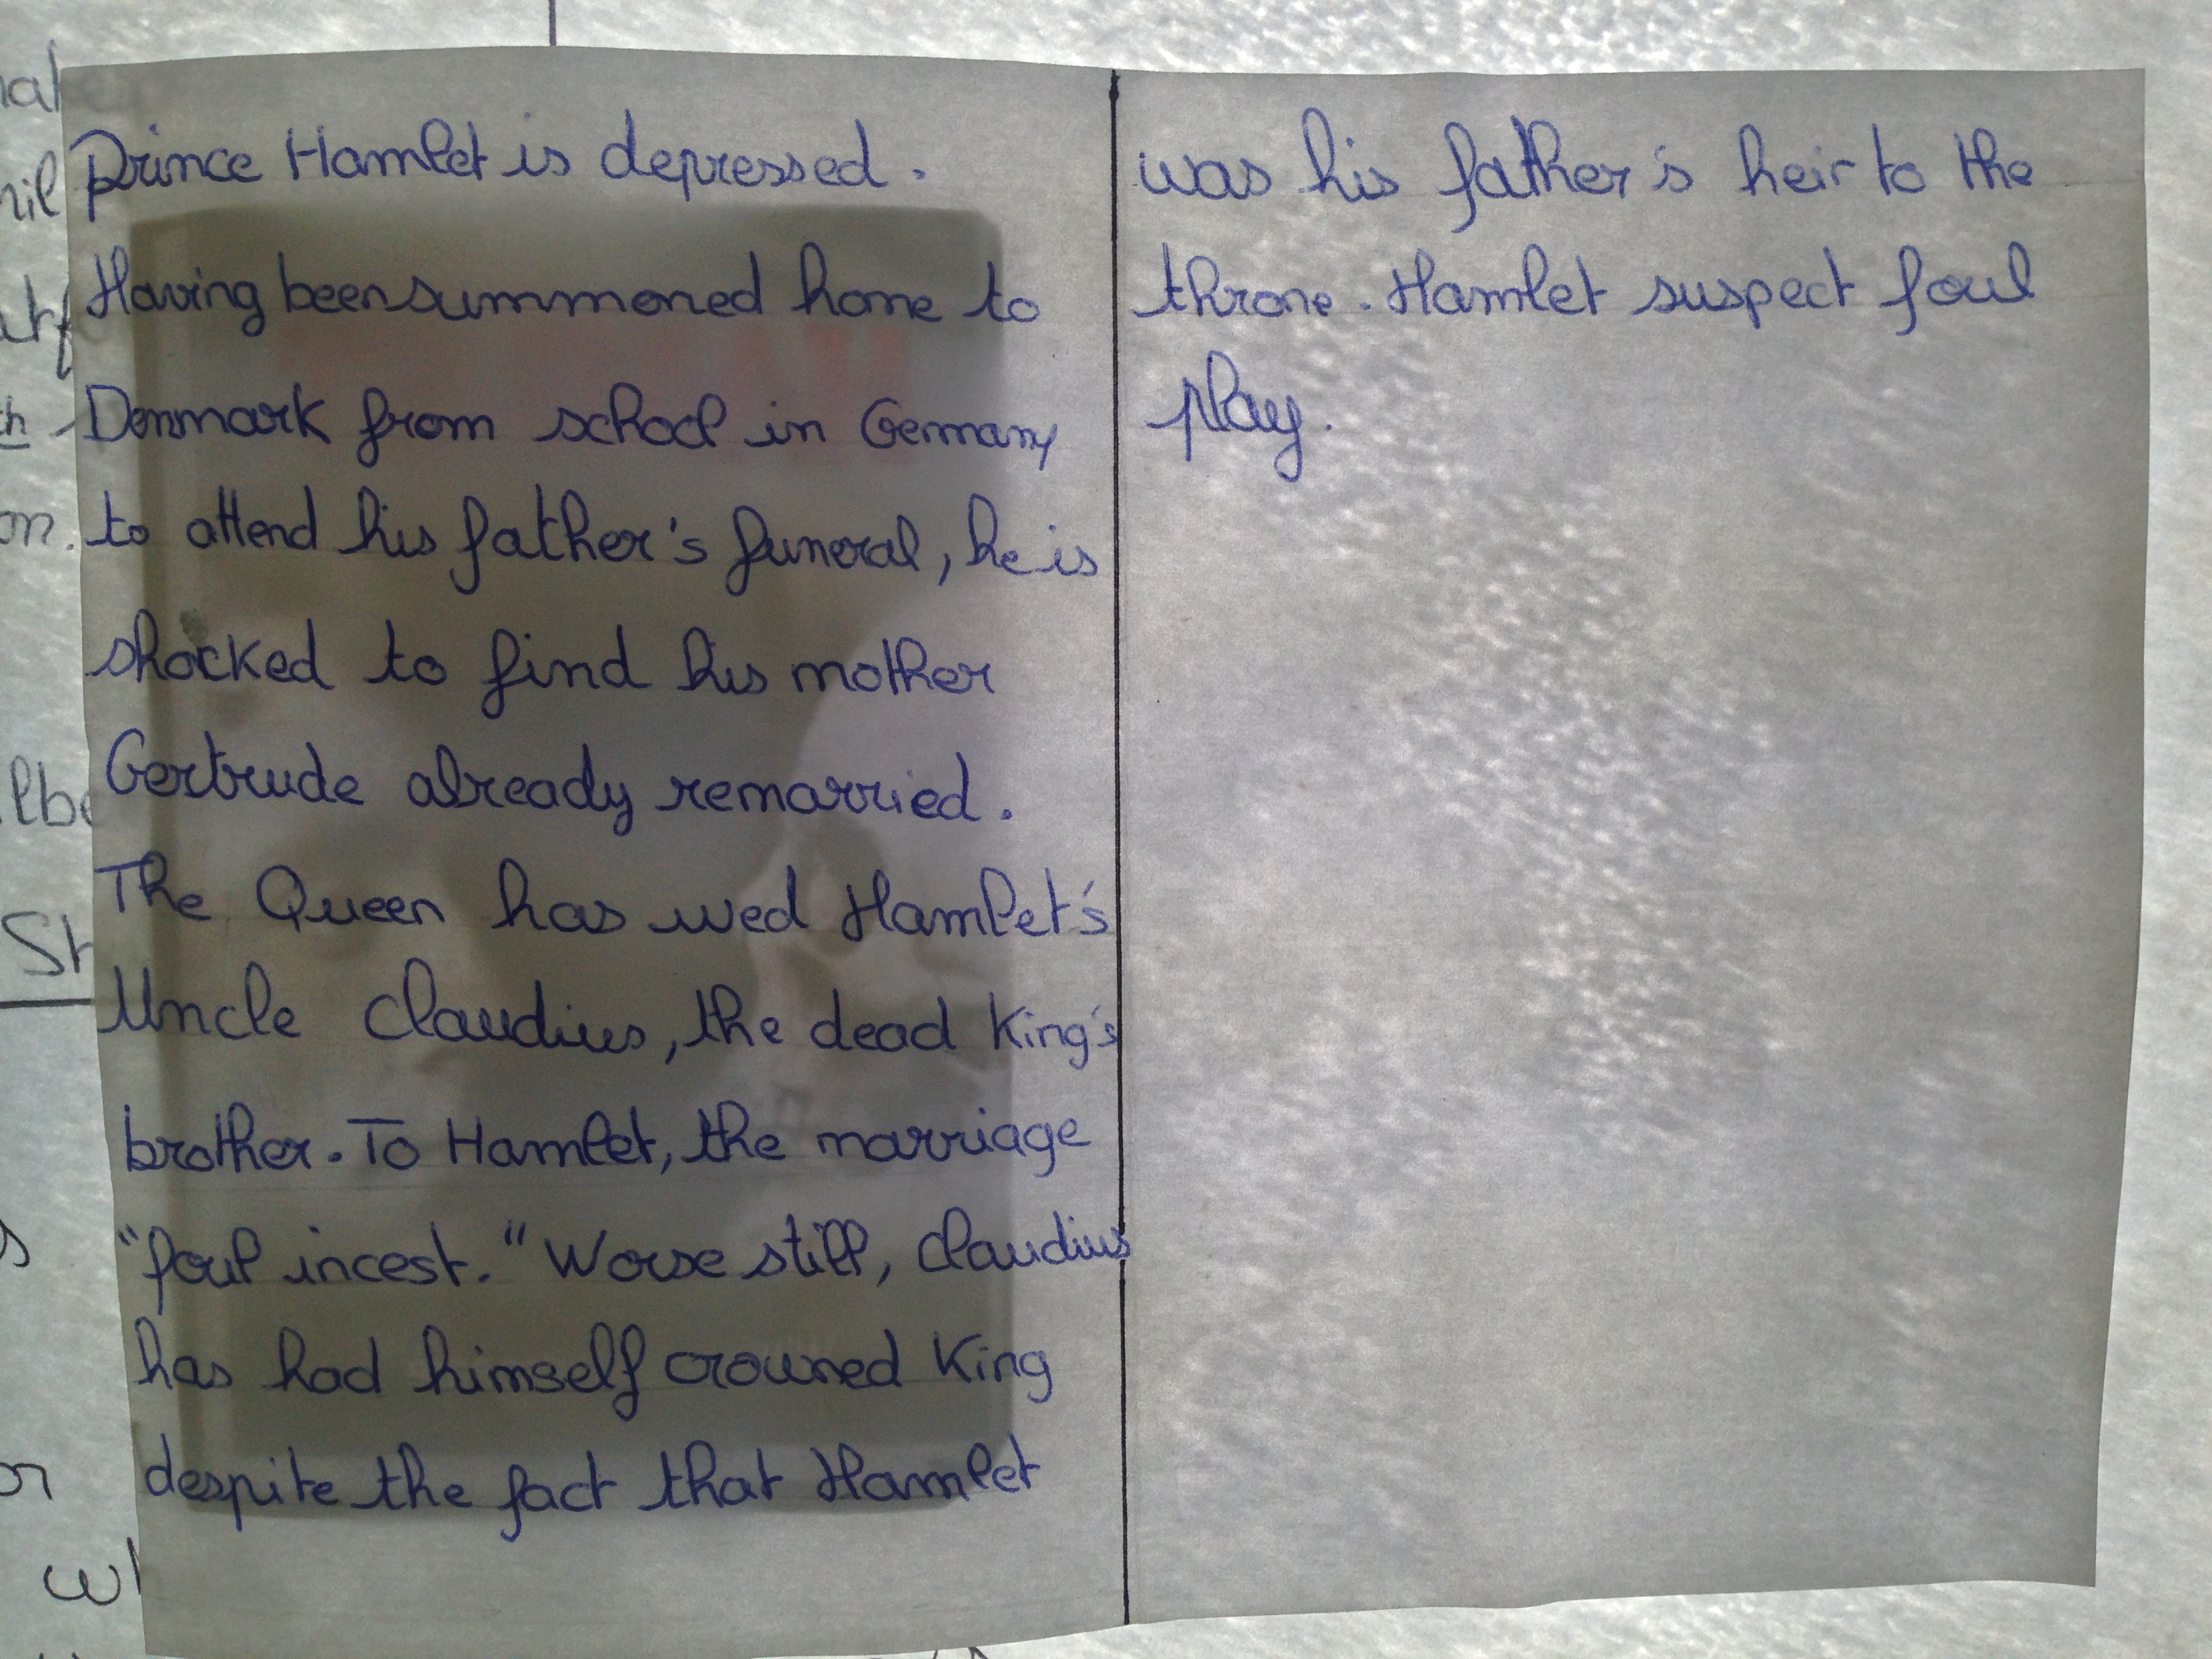 Prince Hamlet is depressed.
Having been summoned home to
Denmark from school in Germany
to attend his father's funeral, he is
shocked to find his mother
Gertrude already remarried.
The Queen has wed Hamlet's
Uncle Claudius, the dead King's
brother. To Hamlet, the marriage
"foul incest." Worse still, Claudius
has had himself crowned King
despite the fact that Hamlet
was his father's heir to the
throne. Hamlet suspect foul
play.